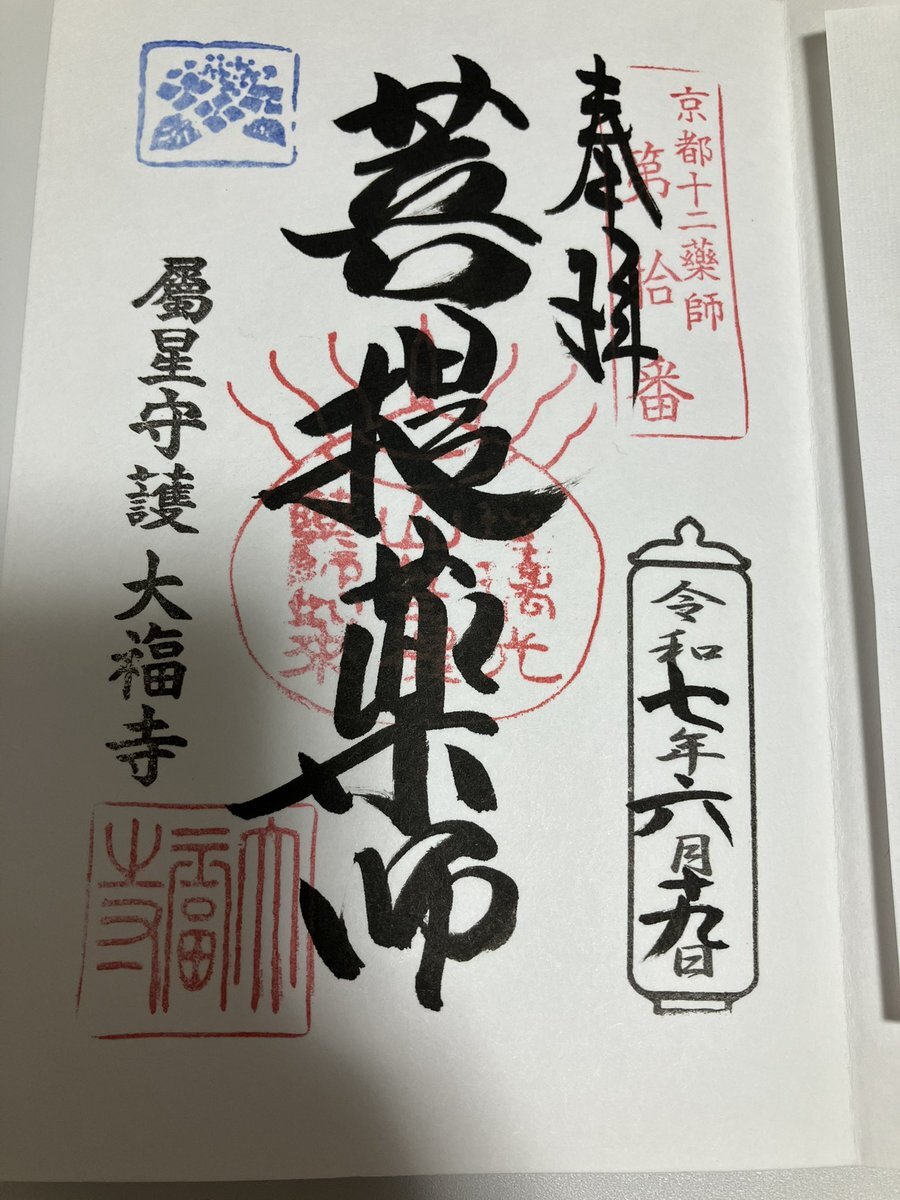 京都十二藥師
第拾番
奉拝
令和七年六月十九日
菩提薬師
屬星守護 大福寺
大福寺